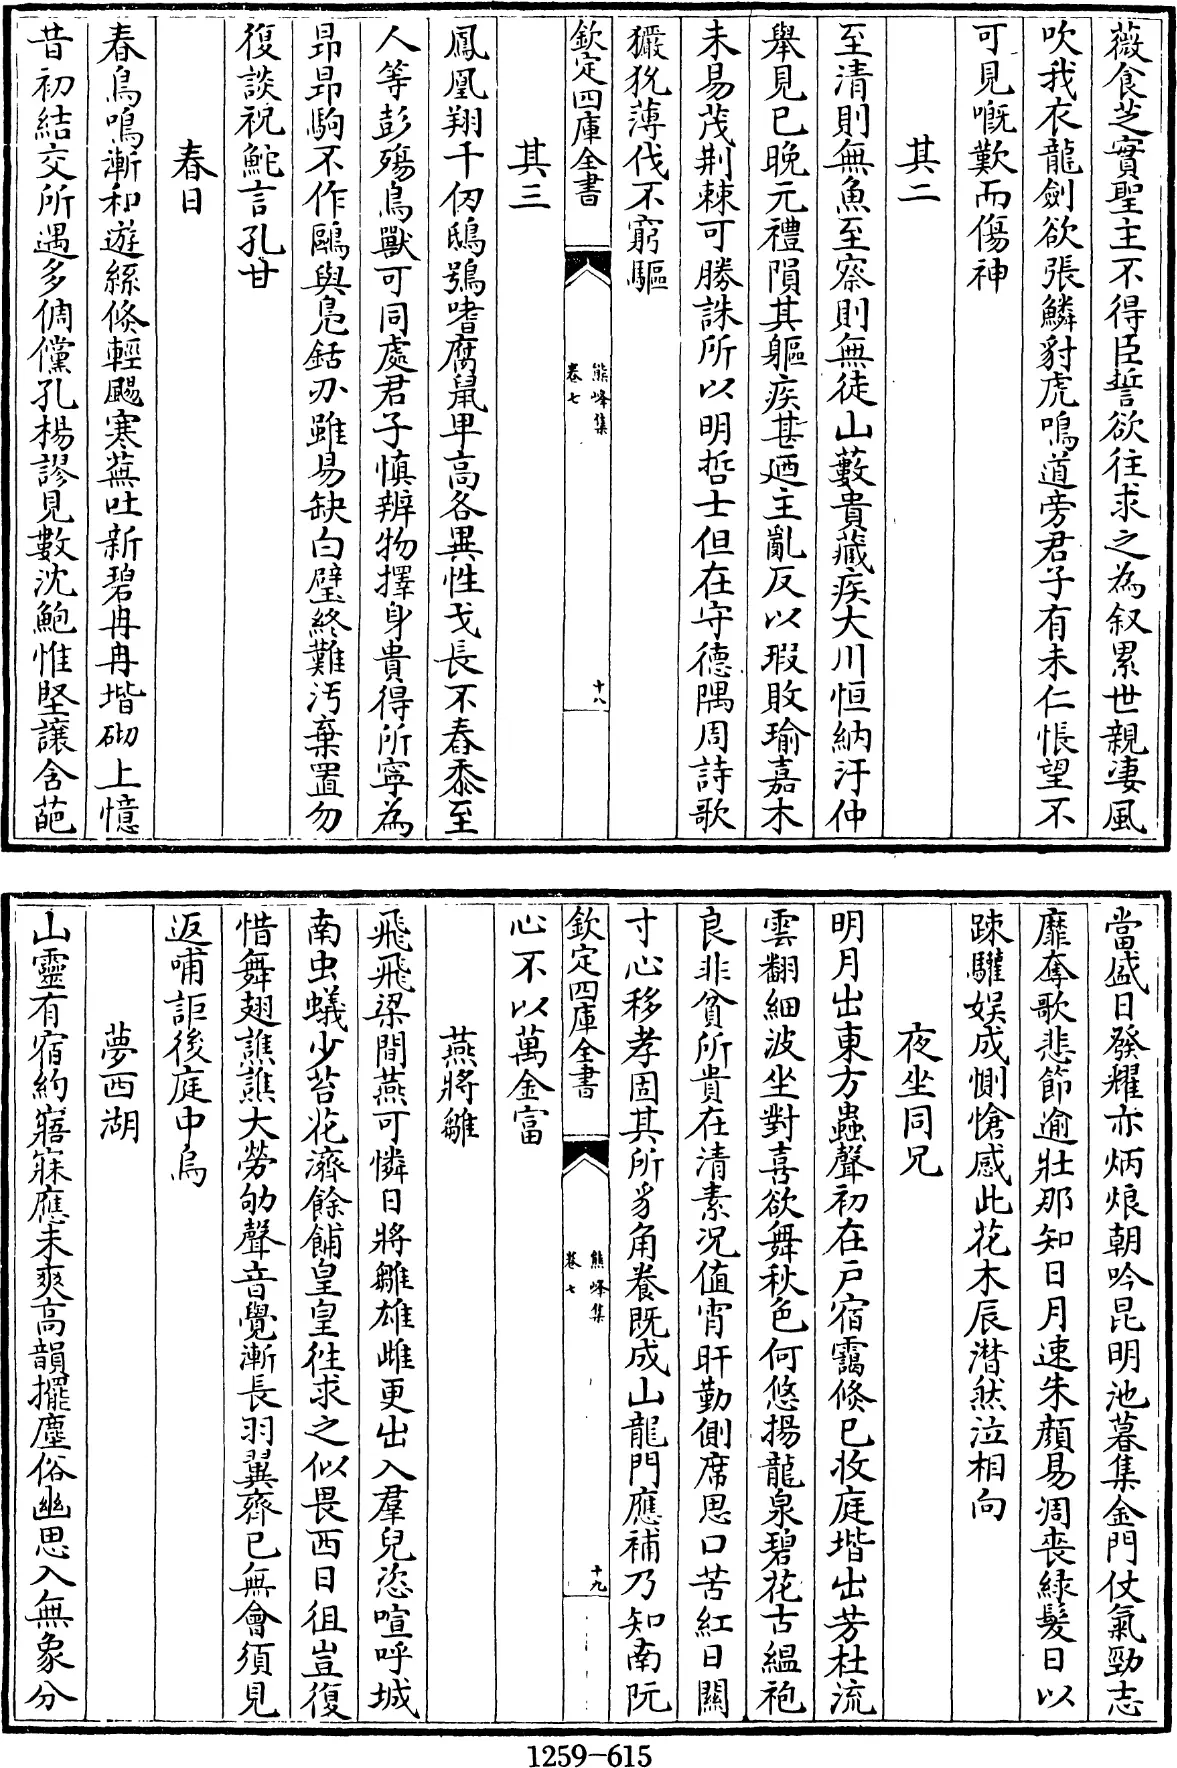 薇食芝實聖主不得臣誓欲往求之為叙累世親淒風
吹我衣龍劍欲張鱗豺虎鳴道旁君子有未仁悵望不
可見嘅歎而傷神
其二
至清則無魚至察則無徒山藪貴藏疾大川恒納汙仲
舉見已晚元禮隕其軀疾甚廼主亂反以瑕敗瑜嘉木
未易茂荆棘可勝誅所以明哲士但在守德隅周詩歌
玁狁薄伐不窮驅
欽定四庫全書
熊峰集
卷七
十八
其三
鳳凰翔千仞鴟鴞嗜腐鼠卑高各異性戈長不舂黍至
人等彭殤鳥獸可同處君子慎辨物擇身貴得所寧為
昻昻駒不作鷗與鳧銛刅雖易缺白璧終難汚棄置勿
復談祝鮀言孔甘
春日
春鳥鳴漸和遊絲倐輕颺寒蕪吐新碧冉冉堦砌上憶
昔初結交所遇多倜儻孔楊謬見數沈鮑惟堅讓含葩
當盛日發耀亦炳烺朝吟昆明池暮集金門仗氣勁志
靡奪歌悲節逾壯那知日月速朱顔易凋喪緑髮日以
踈驩娱成惻愴感此花木辰潸然泣相向
夜坐同兄
明月出東方蟲聲初在戸宿靄倐已收庭堦出芳杜流
雲翻細波坐對喜欲舞秋色何悠揚龍泉碧花古緼袍
良非貧所貴在清素况值宵旰勤側席思口苦紅日闗
寸心移孝固其所豸角養既成山龍門應補乃知南阮
欽定四庫全書
熊峰集
卷七
十九
心不以萬金富
燕將雛
飛飛梁間燕可憐日將雛雄雌更出入羣兒恣喧呼城
南虫蟻少苔花濟餘餔皇皇徃求之似畏西日徂豈復
惜舞翅譙譙大勞劬聲音覺漸長羽翼齊已無會須見
返哺詎後庭中烏
夢西湖
山靈有宿約寤寐應未爽高韻擺塵俗幽思入無象分
1259-615